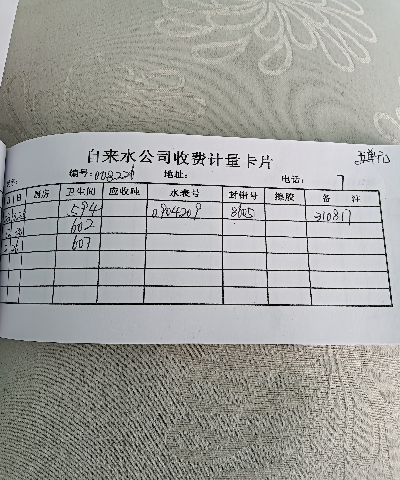 自来水公司收费计量卡片 五单元
编号: 008226 地址: 电话: 7
月日 厨房 卫生间 应收吨 水表号 封铅号 换胶 备注
594 0904209 8605 310817
602
607